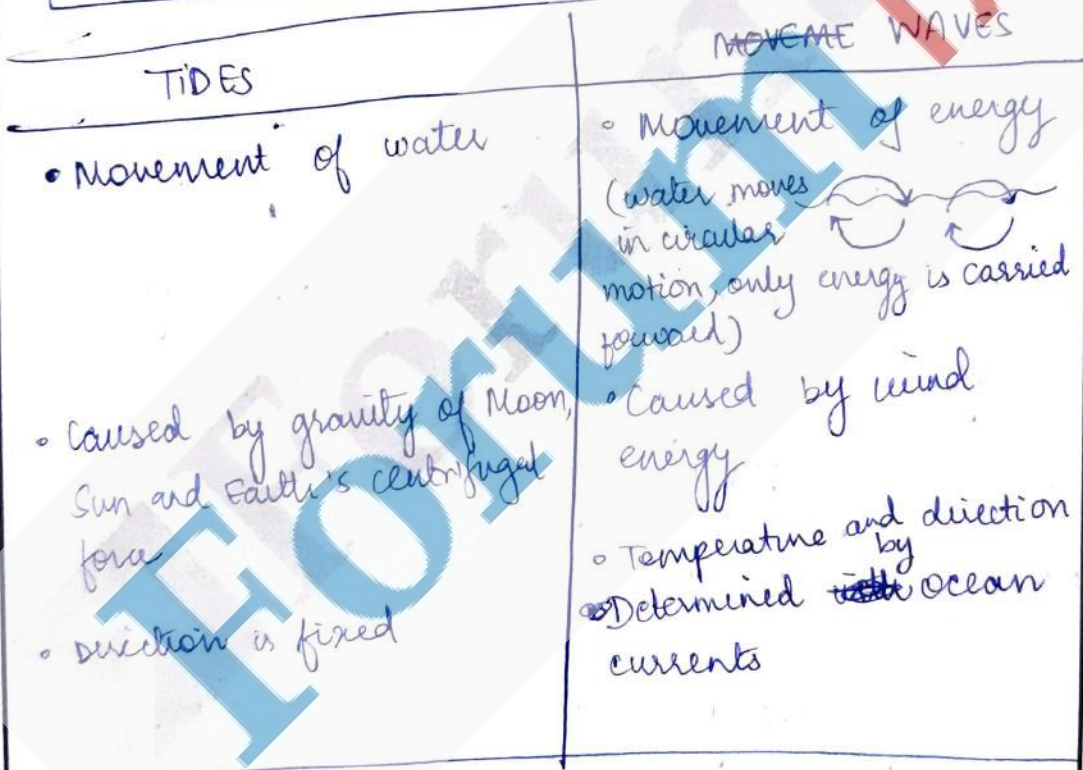 TIDES
• Movement of water
• Caused by gravity of Moon,
Sun and Earth's centrifugal
force
• Direction is fixed
MOVEME WAVES
• Movement of energy
(water moves
in circular
motion, only energy is carried
forward)
• Caused by wind
energy
• Temperature and direction
Determined by ocean
currents
Forum